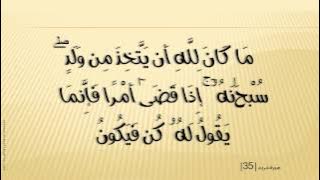 مَا كَانَ لِلَّهِ أَن يَتَّخِذَ مِن وَلَدٍ ۖ
سُبْحَٰنَهُۥٓ ۚ إِذَا قَضَىٰٓ أَمْرًا فَإِنَّمَا
يَقُولُ لَهُۥ كُن فَيَكُونُ
|35|